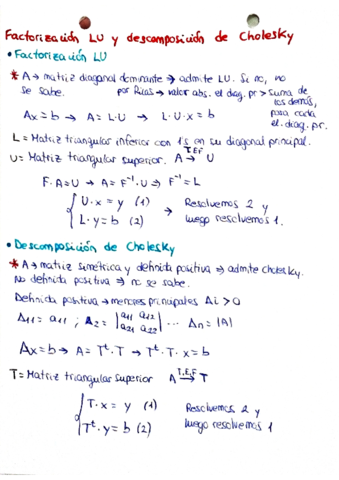 Factorización LU y descomposición de Cholesky
• Factorización LU
* A → matriz diagonal dominante → admite LU. Si no, no
se sabe. por filas → valor abs. el diag. pr > suma de
los demás,
para cada
el. diag. pr.
Ax = b → A = L·U → L·U·x = b
L = Matriz triangular inferior con 1's en su diagonal principal.
U = Matriz triangular superior. A →(T.E.F) U
F·A = U → A = F⁻¹·U → F⁻¹ = L
{ U·x = y (1)
L·y = b (2) → Resolvemos 2 y
luego resolvemos 1.
• Descomposición de Cholesky
* A → matriz simétrica y definida positiva → admite Cholesky.
No definida positiva → no se sabe.
Definida positiva → menores principales Δi > 0
Δ11 = a11 ; Δ2 = |a11 a12
a21 a22| ... Δn = |A|
Ax = b → A = Tᵗ·T → Tᵗ·T·x = b
T = Matriz triangular superior A →(T.E.F) T
{ T·x = y (1)
Tᵗ·y = b (2) Resolvemos 2 y
luego resolvemos 1